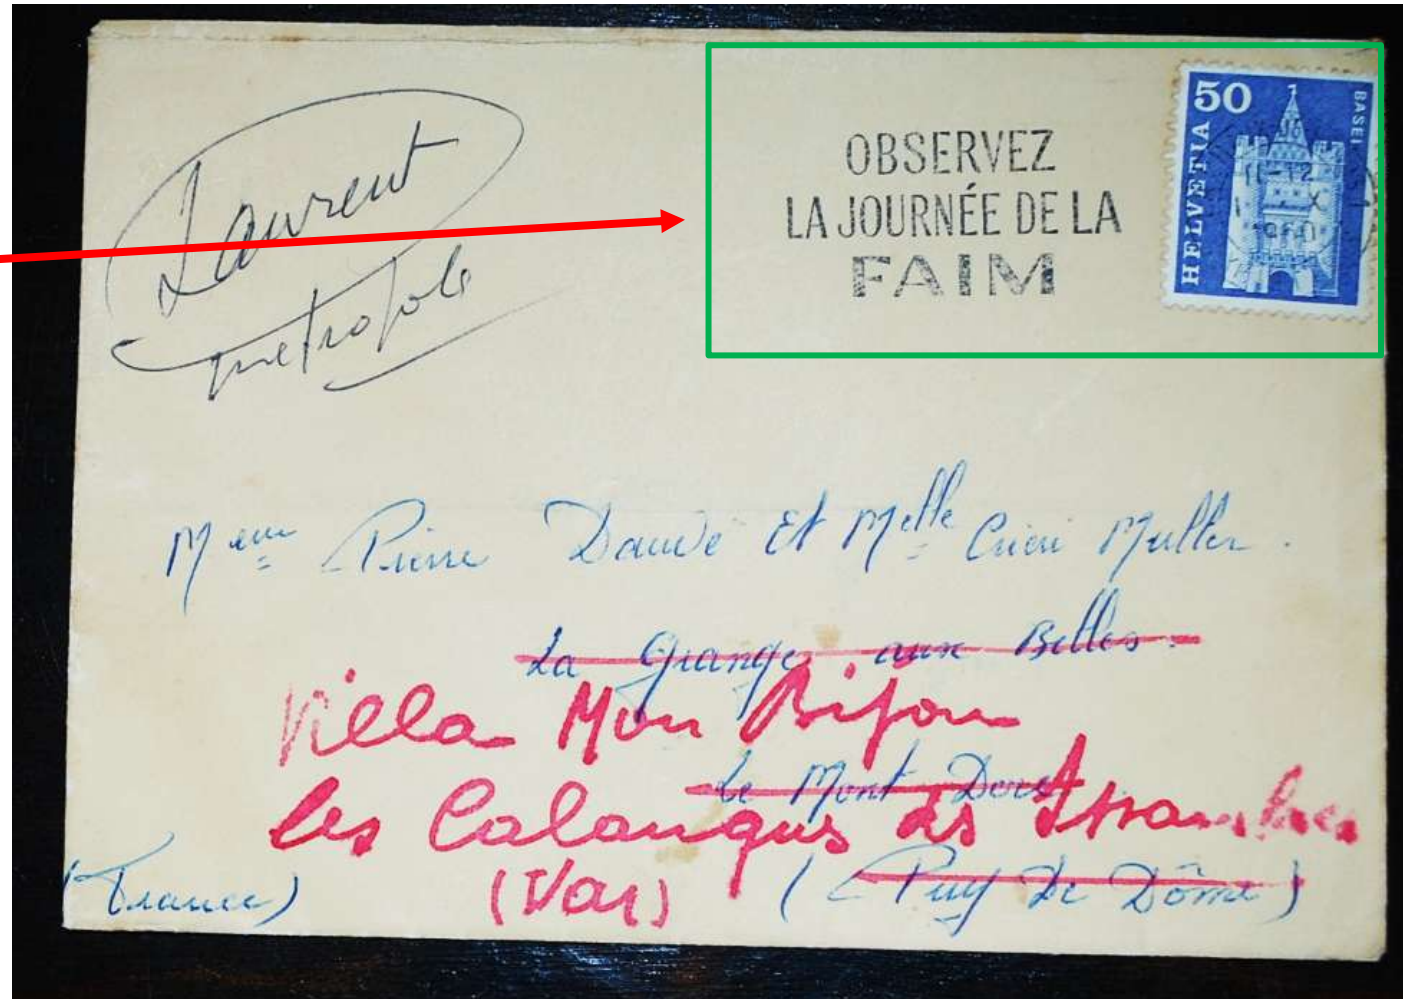 Laurent
metropole
OBSERVEZ
LA JOURNÉE DE LA
FAIM
50
HELVETIA
BASEL
11-12
X
Meme Pierre Daudé Et Melle Muller.
La Grange aux Belles.
Villa Mon Bijou
Le Mont Dore
les Calanques des Issambres
(France)
(Var)
(Puy De Dôme)